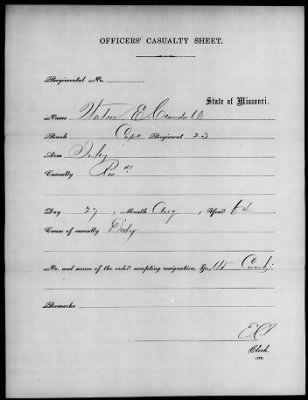 OFFICERS' CASUALTY SHEET.
Regimental No.
State of Missouri.
Name E. Crandall
Rank Capt Regiment 22
Arm Infy
Casualty
Day 27, Month Aug, Year 64
Cause of casualty
No. and source of the order accepting resignation, &c., 115
Remarks
Clerk.